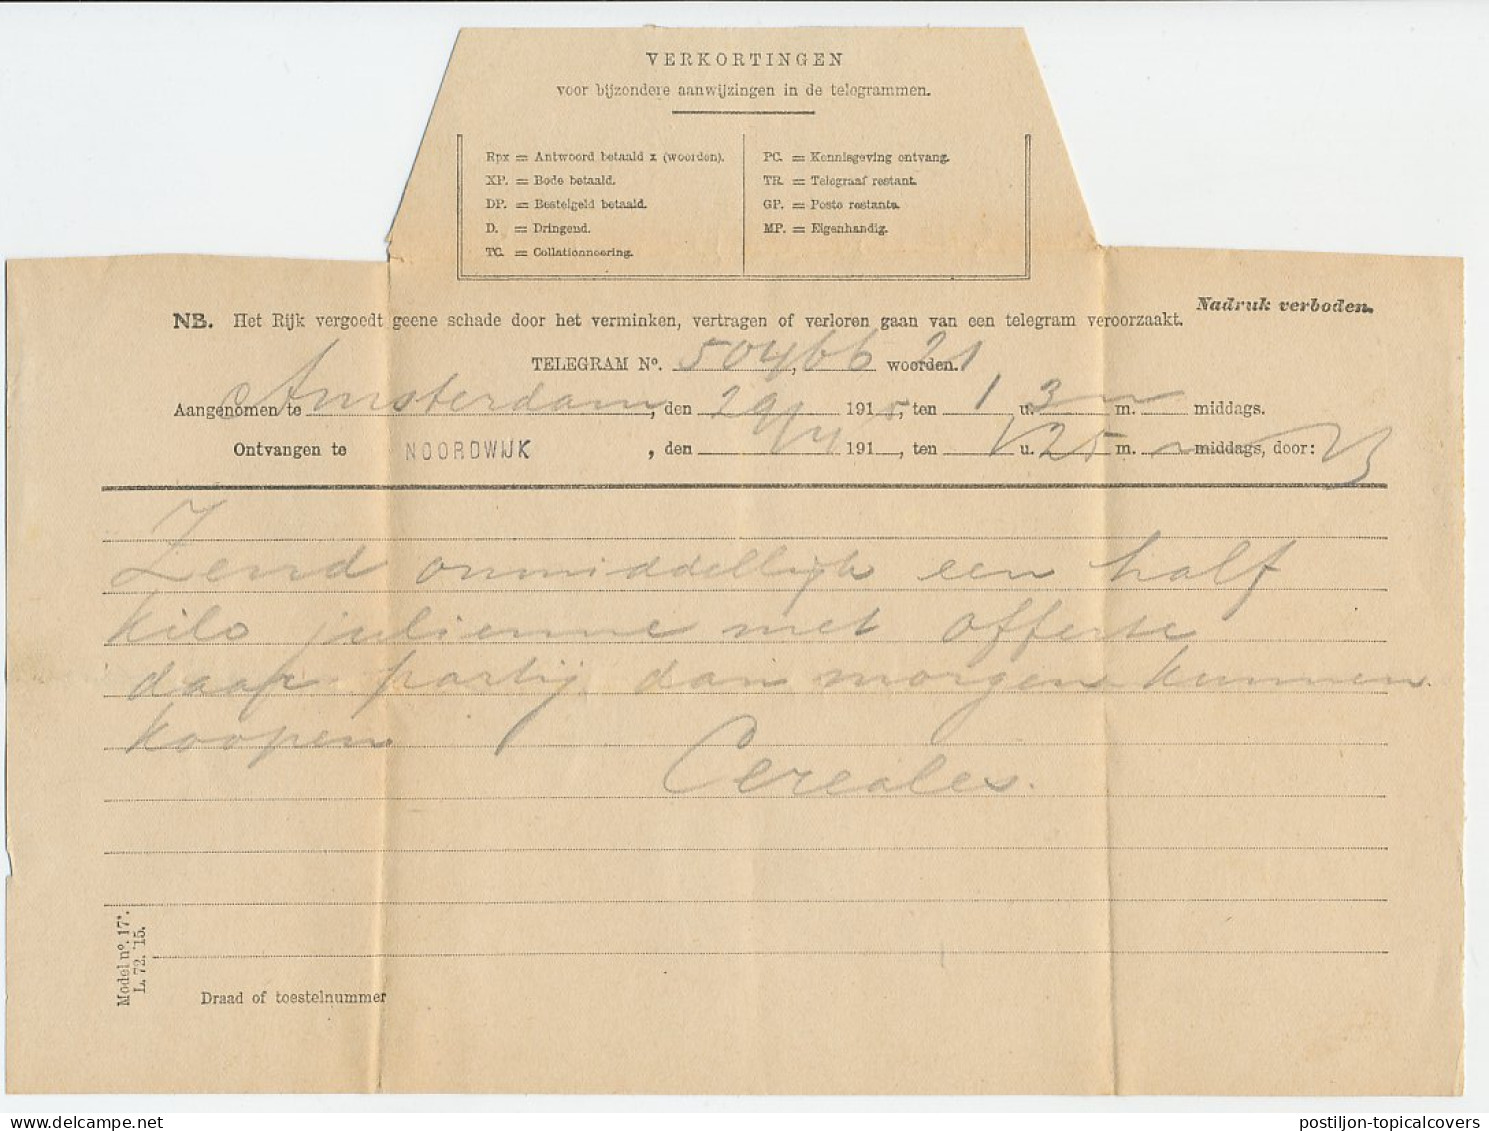 VERKORTINGEN
voor bijzondere aanwijzingen in de telegrammen.
Rpx = Antwoord betaald x (woorden).
XP. = Bode betaald.
DP. = Bestelgeld betaald.
D. = Dringend.
TC. = Collationneering.
PC. = Kennisgeving ontvang.
TR. = Telegraaf restant.
GP. = Poste restante.
MP. = Eigenhandig.
Nadruk verboden.
NB. Het Rijk vergoedt geene schade door het verminken, vertragen of verloren gaan van een telegram veroorzaakt.
TELEGRAM No. 50466, woorden. 21
Aangenomen te Amsterdam, den 29/4 1915, ten 1 u. 3 m. middags.
Ontvangen te NOORDWIJK, den 191, ten 1 u. 25 m. middags, door:
Zend onmiddellijk een half
kilo julienne met offerte
daar partij dan morgen kunnen
koopen
Cereales.
Model no. 17*.
L. 72. '15.
Draad of toestelnummer
postiljon-topicalcovers